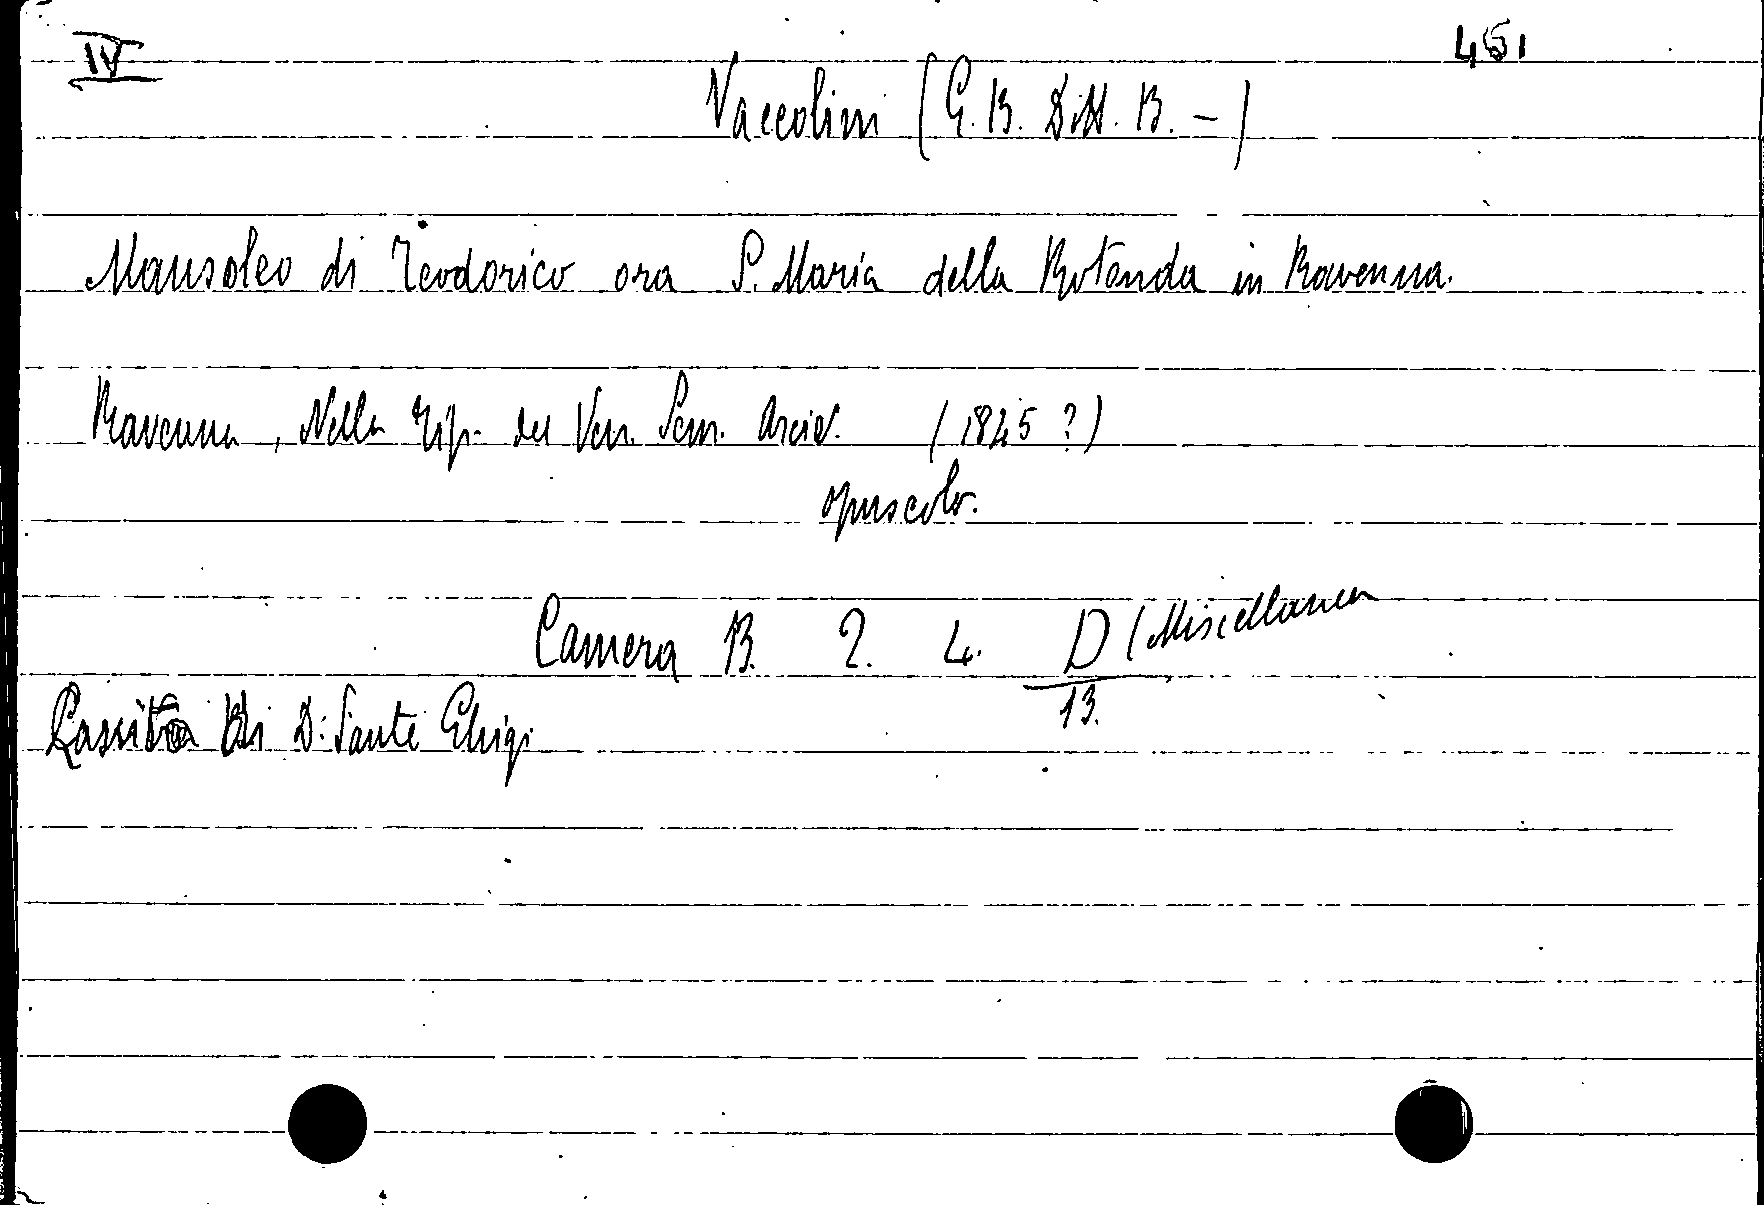 IV
451
Vaccolini (G. B. Dott. B. -)
Mausoleo di Teodorico ora S. Maria della Rotonda in Ravenna.
Ravenna, Nella Tip. del Ven. Sem. Arciv. (1845 ?)
opuscolo.
Camera B. 2. 4. D (Miscellanea
13.
Lascito di D: Sante Ghigi